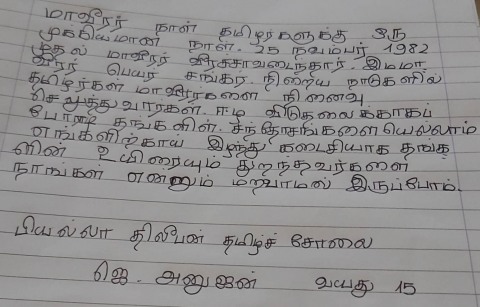 மாவீரர் நாள் தமிழர்களுக்கு ஒரு
முக்கியமான நாள். 25 நவம்பர் 1982
முதல் மாவீரர் வீரச்சாவடைந்தார். இம்மா
வீரர் பெயர் சங்கர். நிறைய நாடுகளில்
தமிழர்கள் மாவீரர்களை நினைவு
செலுத்துவார்கள். ஈழ விடுதலைக்காகப்
போராடி தங்களின் சந்தோசங்களையெல்லாம்
எங்களிற்காய் இழந்து கடைசியாக தங்க
ளின் உயிரையும் துறந்தவர்களை
நாங்கள் என்னும் மறவாமல் இருப்போம்.
பியல்லா திலீபன் தமிழ்ச் சோலை
ஜெ. அனுஜன் வயது 15